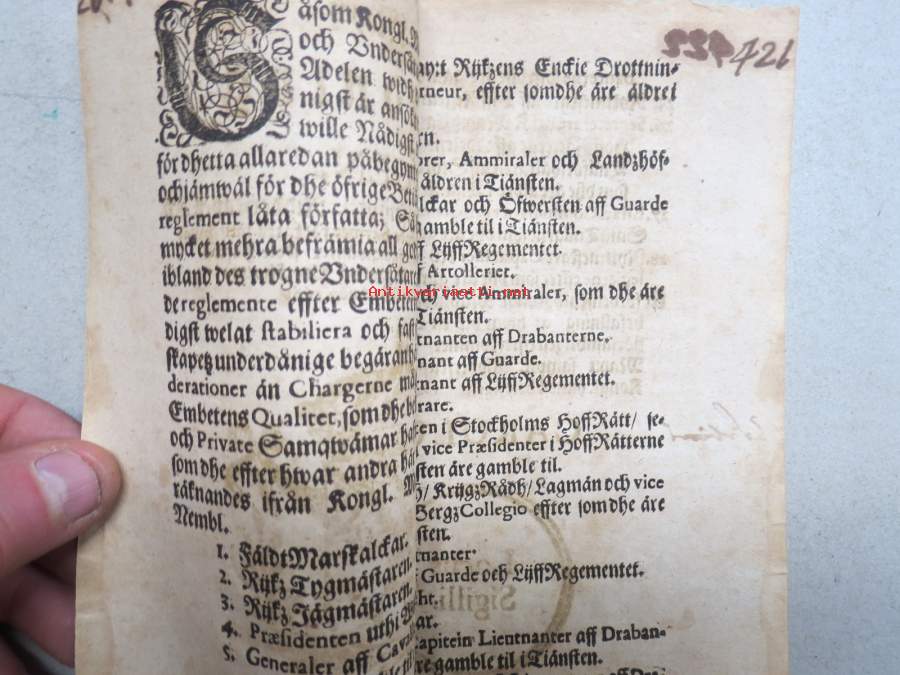 åsom Kongl.
och Vndersåt
Adelen widh
nigst är ansökt
wille Nådigst
för dhetta allaredan påbegynt
och jämwäl för dhe öfrige
reglement låta författa; Så
mycket mehra befrämia all
ibland des trogne Vndersåtare
de reglemente effter Embeten
digst welat stabiliera och fast
skapetz underdånige begäran
derationer än Chargerne
Embetens Qualitet, som dhe
och Private Samqwämar
som dhe effter hwar andra
räknandes ifrån Kongl.
Nembl.
1. FäldtMarskalckar.
2. Rijkz Tygmästaren.
3. Rijkz Jägmästaren.
4. Præsidenten uthi
5. Generaler aff
554 421
ay:t Rijkzens Enckie Drottnin-
rneur, effter som dhe äre äldre i
en.
orer, Ammiraler och Landzhöf-
äldren i Tiänsten.
lckar och Öfwersten aff Guarde
gamble til i Tiänsten.
ff LijffRegementet.
f Artolleriet.
ch vice Ammiraler, som dhe äre
Tiänsten.
tnanten aff Drabanterne.
nant aff Guarde.
nant aff LijffRegementet.
rare.
en i Stockholms HoffRätt/ se-
vice Præsidenter i HoffRätterne
sten äre gamble til.
/ KrijgzRådh/ Lagmän och vice
BergzCollegio effter som dhe äre
sten.
tnanter.
f Guarde och LijffRegementet.
ht.
ar.
apitein Lieutnanter aff Draban-
re gamble til i Tiänsten.
Antikvariaatti.net